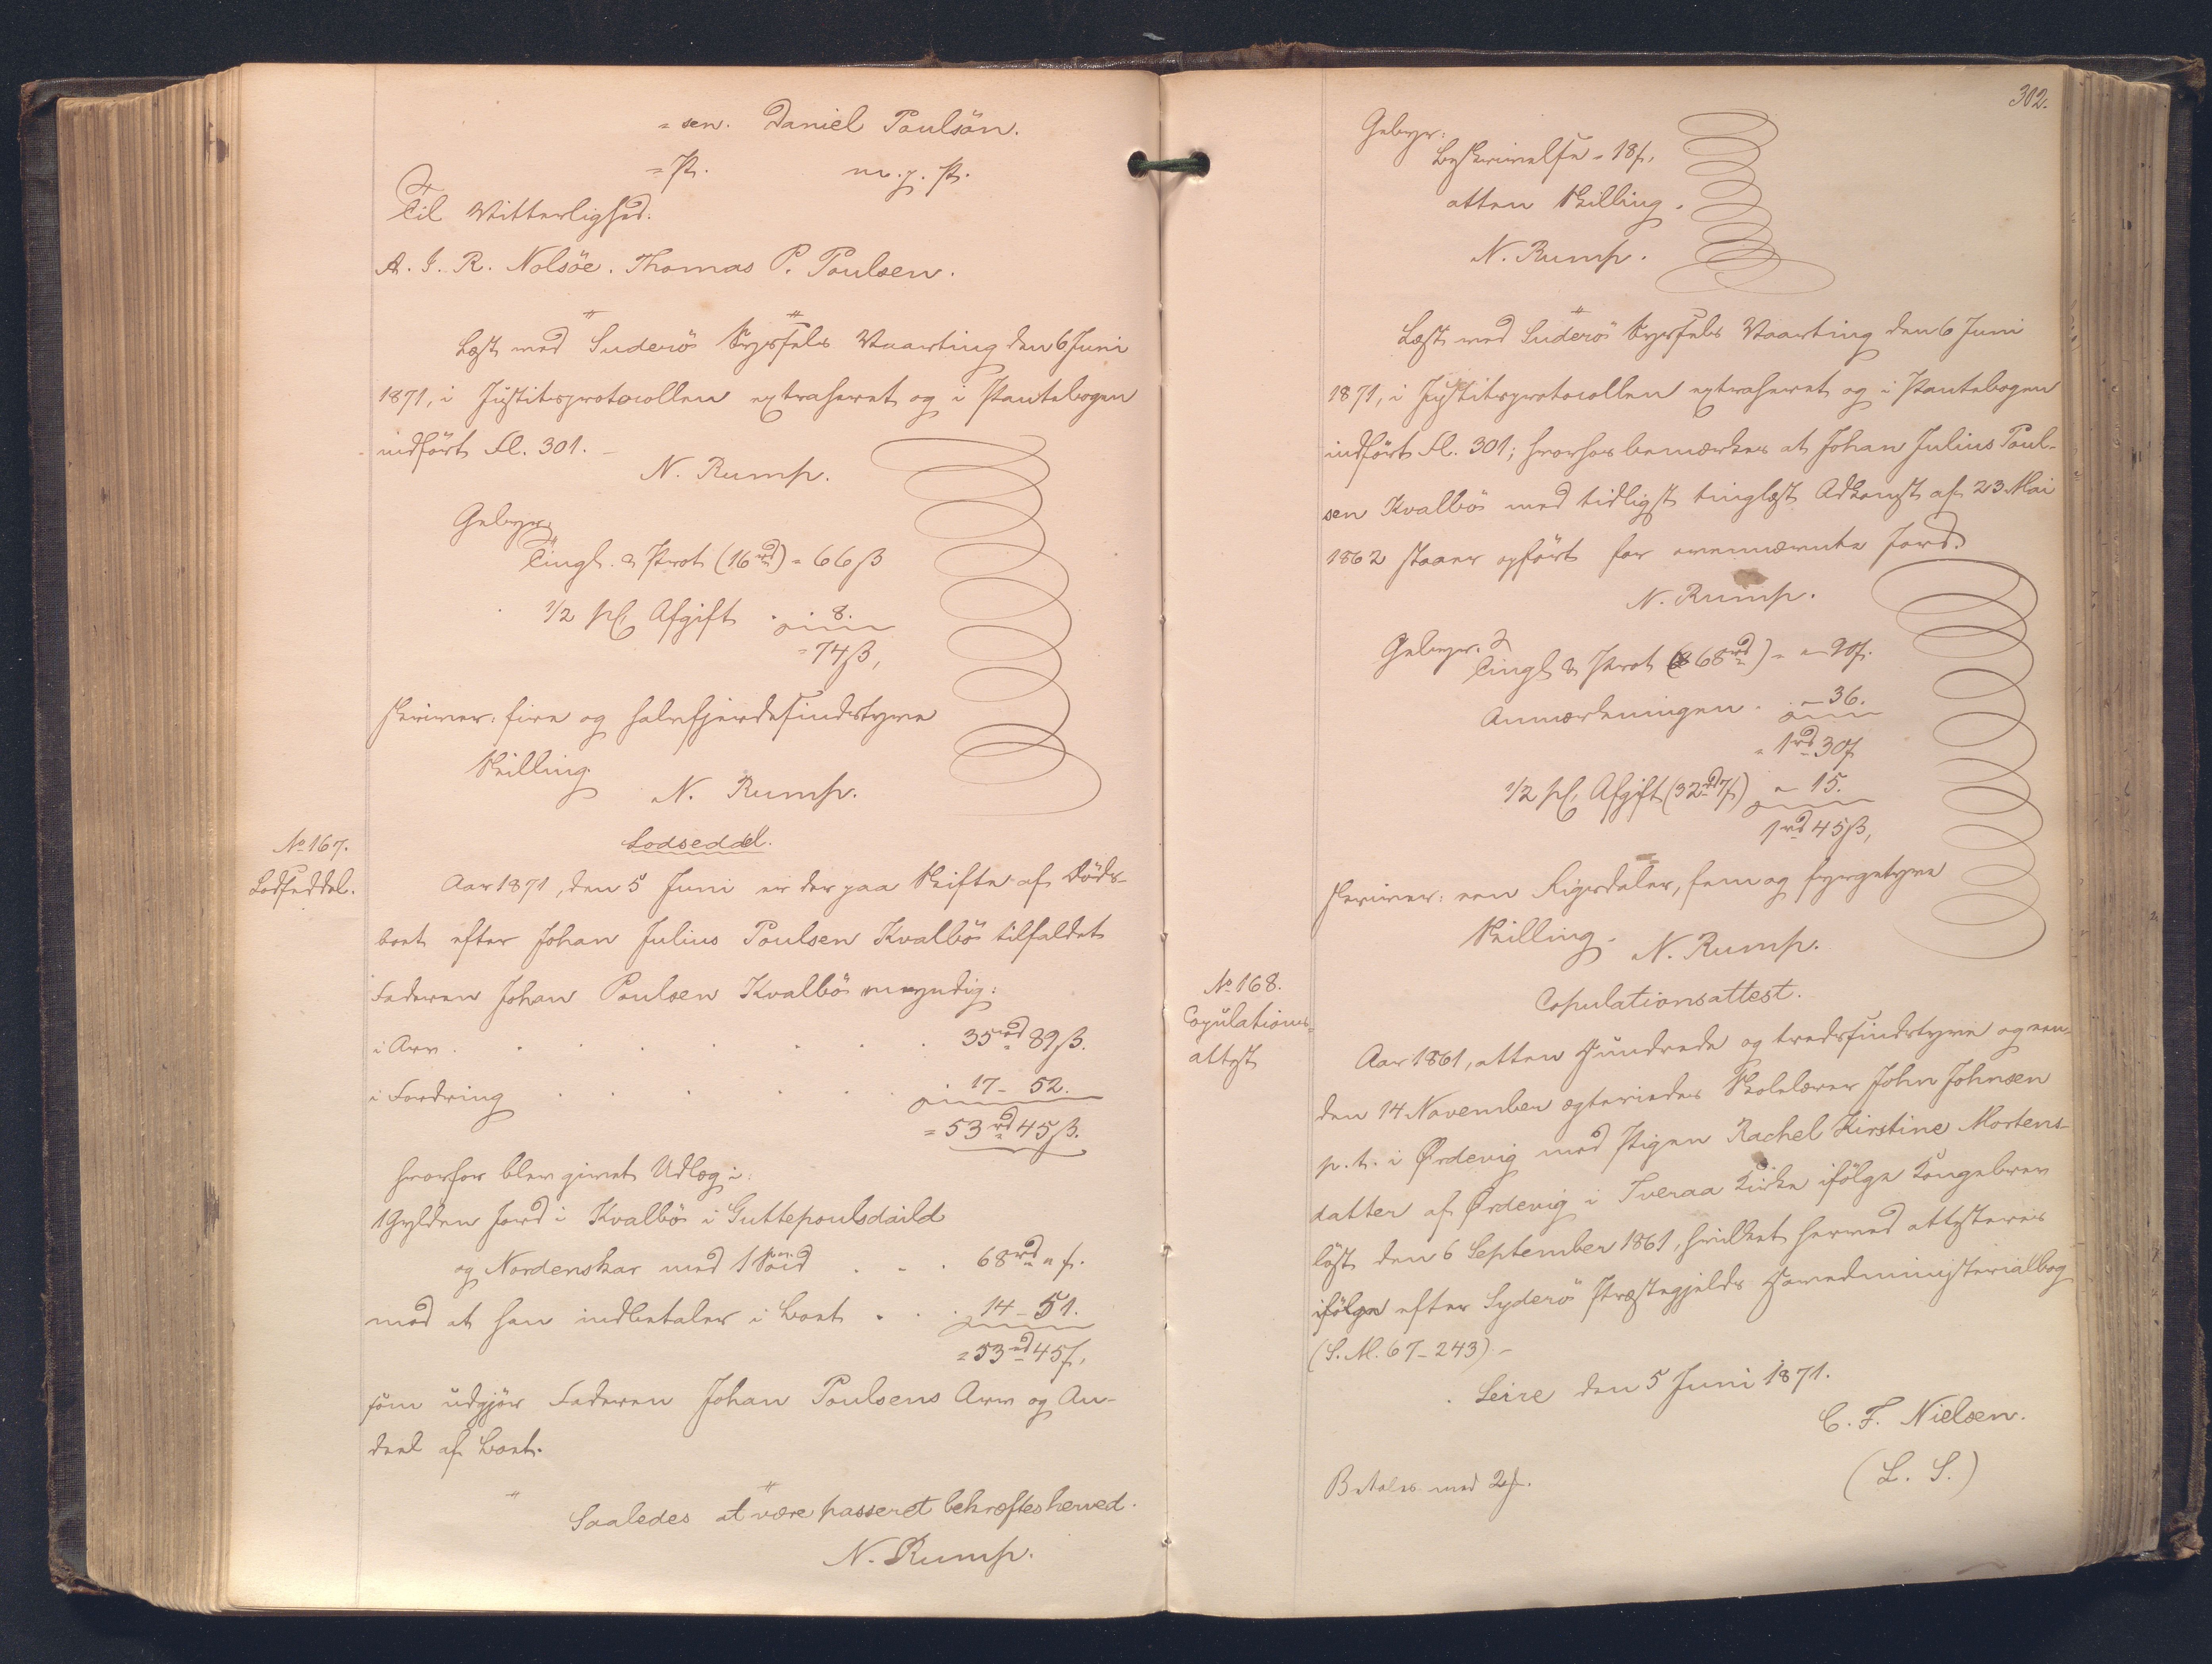 = sen. Daniel Poulsön.
= P. m. f. P.
Til Vitterlighed:
A. J. R. Nolsöe. Thomas P. Poulsen.
Læst ved Suderö Sysfels Vaarting den 6 Juni
1871, i Justitsprotocollen extraheret og i Pantebogen
indført Fl. 301. –
N. Rump.
Gebyr:
Tingl. & Prot (16rd) = 66 ß
1/2 pCt Afgift . - 8.
= 74 ß,
skriver: fire og halvfjerdesindstyve
Skilling
N. Rump.
No 167.
Lodseddel.
Lodseddel.
Aar 1871, den 5 Juni er der paa Skifte af Döds-
boet efter Johan Julius Poulsen Kvalbö tilfaldet
Faderen Johan Poulsen Kvalbö myndig:
i Arv . . . . . . . 35rd 89 ß.
i Fordring . . . . . 17 - 52.
= 53rd 45 ß.
hvorfor blev givet Udlæg i:
1 Gylden Jord i Kvalbö i Guttepoulsdaild
og Nordenskar med 1 . . . 68rd " ß.
mod at han indbetaler i Boet . . . 14 - 51.
= 53rd 45 ß,
som udgjör Faderen Johan Poulsens Arv og An-
deel af Boet.
Saaledes at være passeret bekræftes herved.
N. Rump.
302.
Gebyr:
Beskrivelse = 18 ß,
atten Skilling.
N. Rump.
Læst ved Suderö Sysfels Vaarting den 6 Juni
1871, i Justitsprotocollen extraheret og i Pantebogen
indført Fl. 301; hvorhos bemærkes at Johan Julius Poul-
sen Kvalbö med tidligst tinglæst Adkomst af 23 Mai
1862 staaer opført for ovennævnte Jord.
N. Rump.
Gebyr:
Tingl & Prot (68rd) = " - 90 ß.
Anmærkningen . . - 36.
= 1rd 30 ß
1/2 pCt Afgift (32rd 7 ß) " - 15.
1rd 45 ß,
skriver: een Rigsdaler, fem og fyrgetyve
Skilling.
N. Rump.
No 168.
Copulations-
attest
Copulationsattest.
Aar 1861, atten hundrede og tredsindstyve og een
den 14 November egteviedes Skolelærer John Johnsen
p. t. i Ørdevig med Pigen Rachel Kirstine Mortens-
datter af Ørdevig i Tveraa Kirke ifölge Kongebrev
löst den 6 September 1861, hvilket herved attesteres
ifölge efter Syderö Præstegjelds Hovedministerialbog
(S. M. 67 - 243). –
Seire den 5 Juni 1871.
C. F. Nielsen.
(L. S.)
Betales med 2 ß.